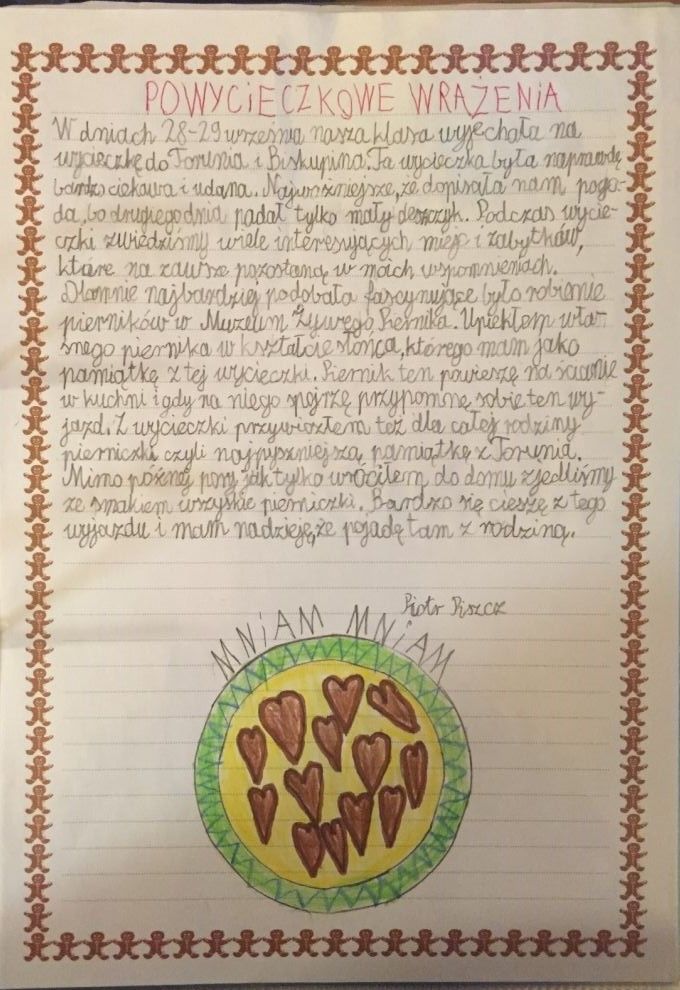 POWYCIECZKOWE WRAŻENIA
W dniach 28-29 września nasza klasa wyjechała na
wycieczkę do Torunia i Biskupina. Ta wycieczka była naprawdę
bardzo ciekawa i udana. Najważniejsze, że dopisała nam pogo-
da, bo drugiego dnia padał tylko mały deszczyk. Podczas wycie-
czki zwiedziśmy wiele interesujących miejc i zabytków,
które na zawsze pozostaną w moich wspomnieniach.
Dlamnie najbardziej podobała fascynujące było robienie
pierników w Muzeum Żywego Piernika. Upiekłem wła-
snego piernika w kształcie słońca, którego mam jako
pamiątkę z tej wycieczki. Piernik ten powieszę na ścianie
w kuchni i gdy na niego spojrzę przypomnę sobie ten wy-
jazd. Z wycieczki przywiozłem też dla całej rodziny
pierniczki czyli najpyszniejszą pamiątkę z Torunia.
Mimo późnej pory jak tylko wróciłem do domu zjedliśmy
ze smakiem wszyskie pierniczki. Bardzo się cieszę z tego
wyjazdu i mam nadzieję, że pojadę tam z rodziną.
Piotr Piszcz
MNiAM MNiAM